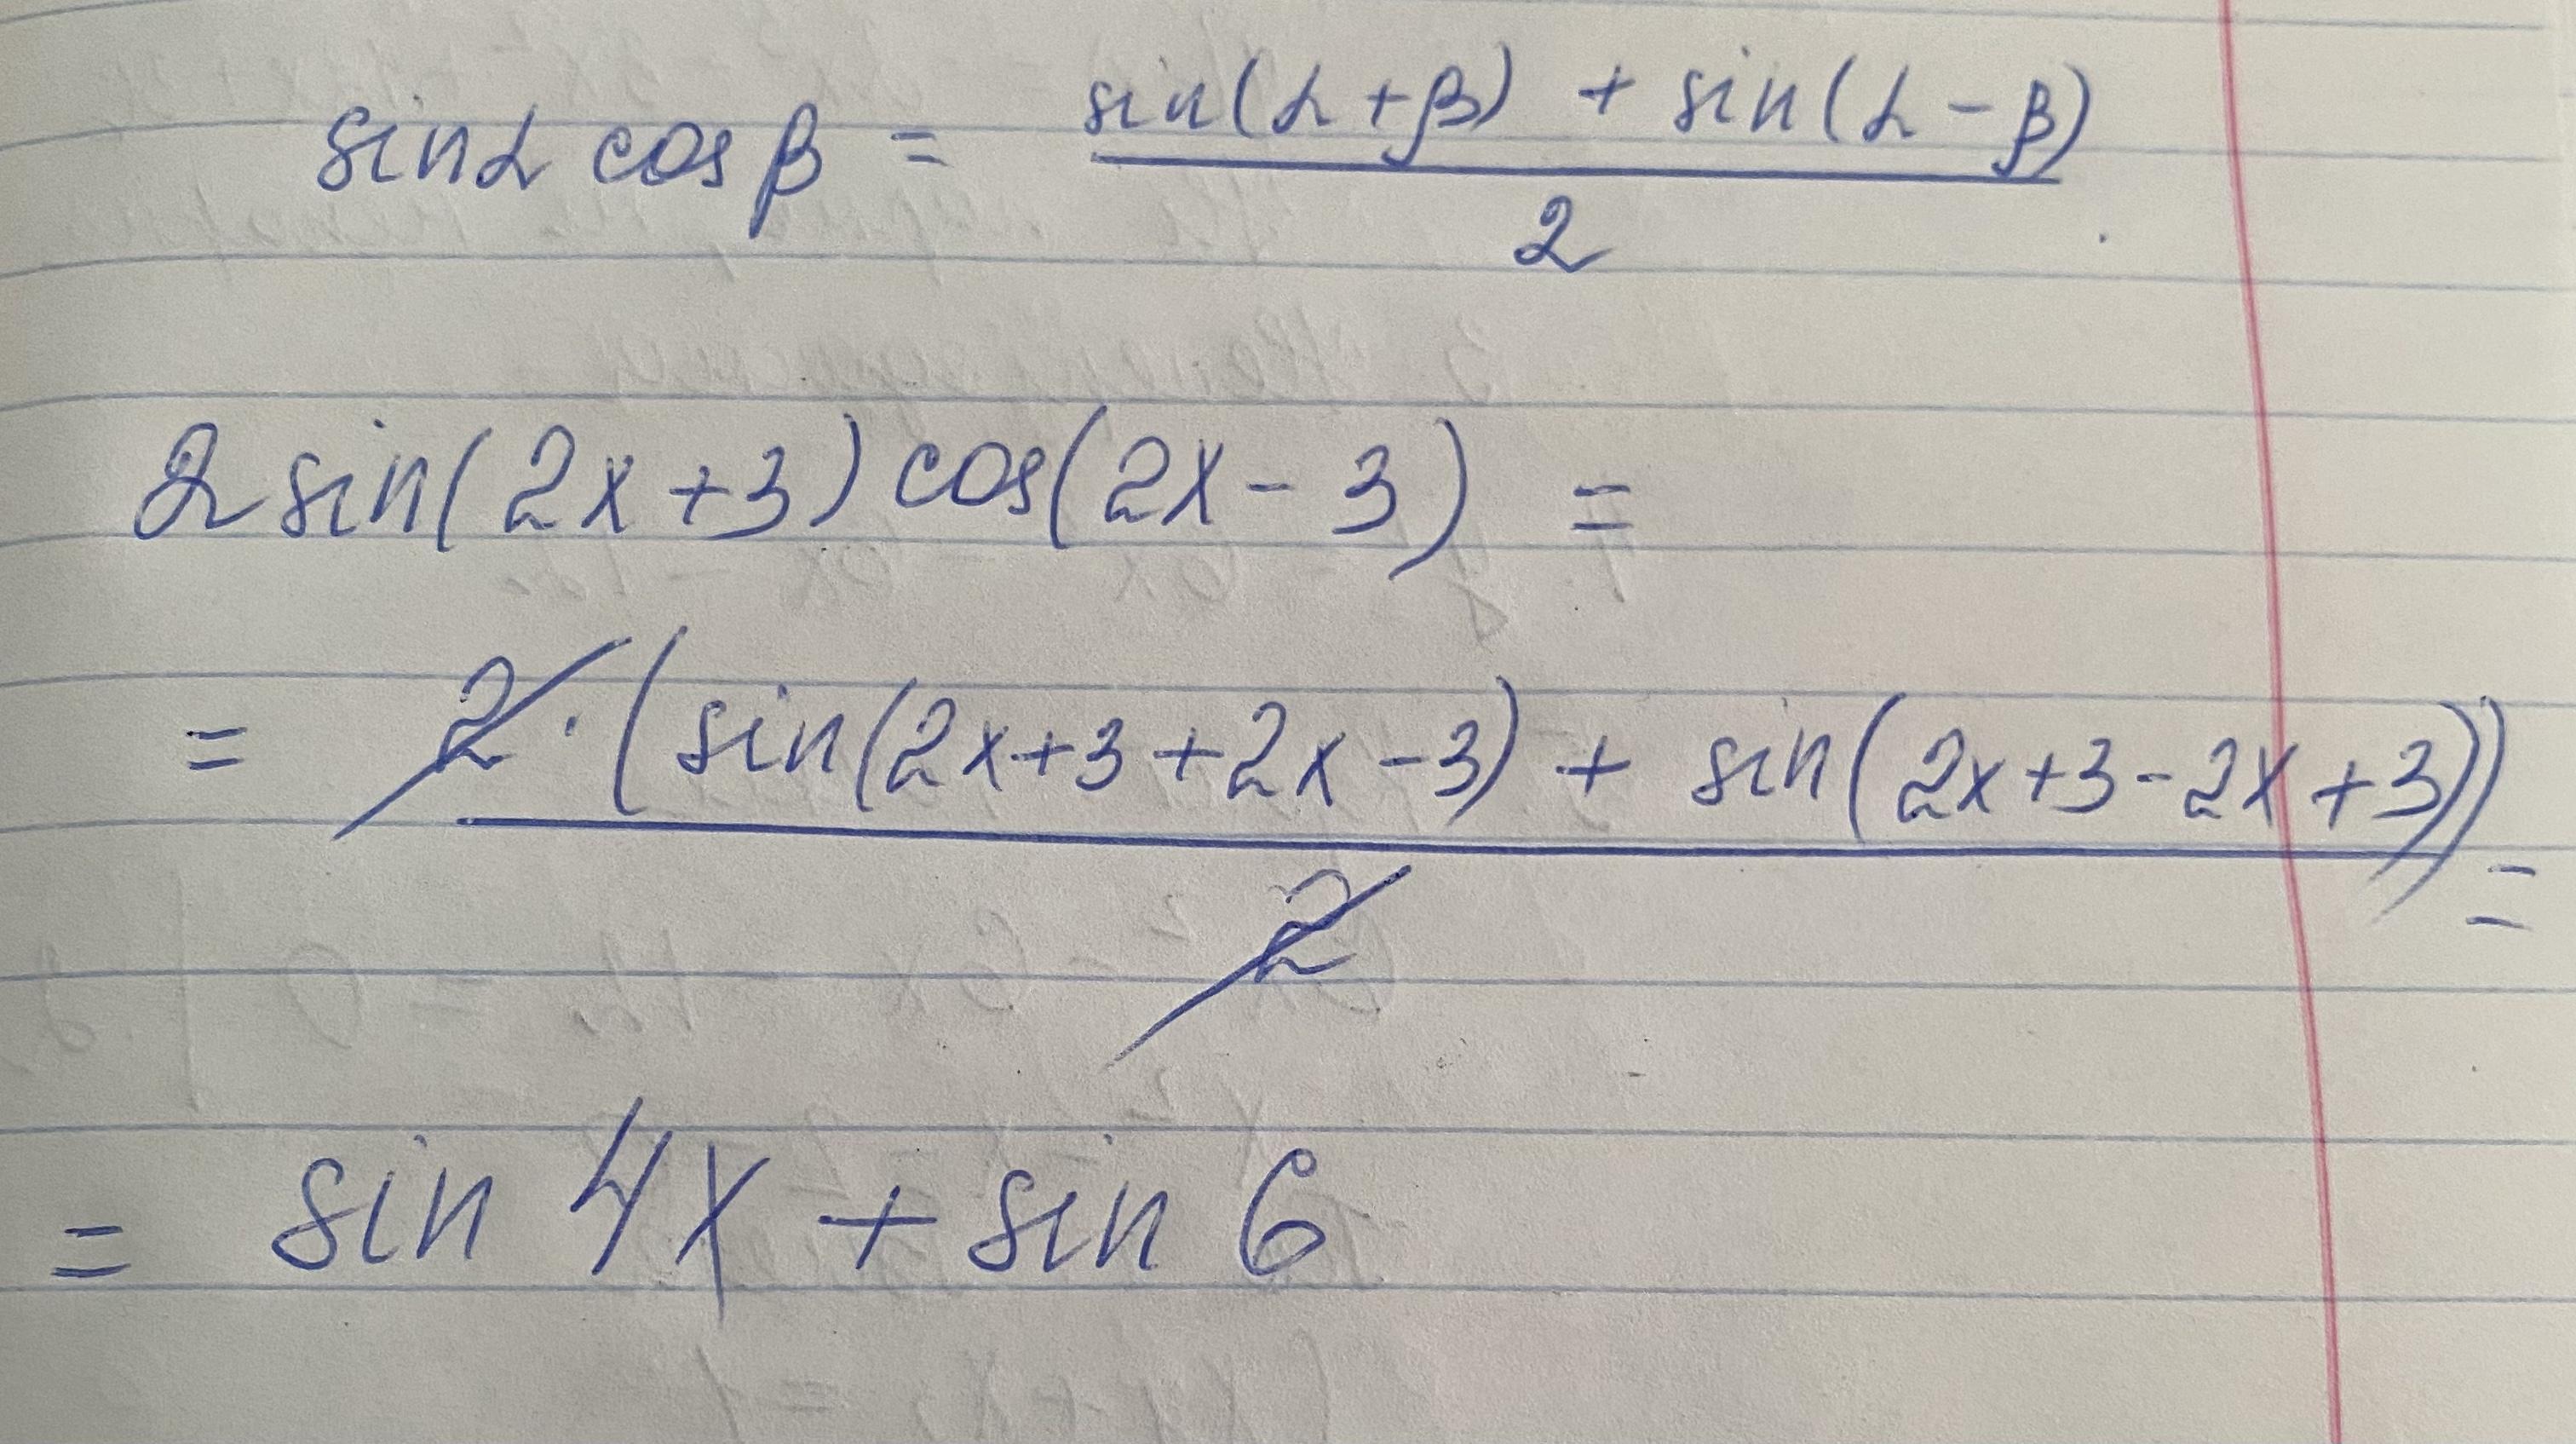 sin α cos β = (sin(α + β) + sin(α - β)) / 2
2 sin(2x + 3) cos(2x - 3) =
= 2 · (sin(2x + 3 + 2x - 3) + sin(2x + 3 - 2x + 3)) / 2 =
= sin 4x + sin 6